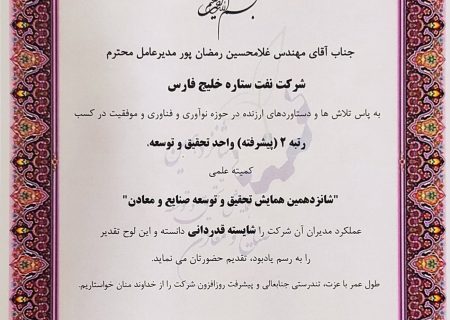 جناب آقای مهندس غلامحسین رمضان پور مدیرعامل محترم
شرکت نفت ستاره خلیج فارس
به پاس تلاش ها و دستاوردهای ارزنده در حوزه نوآوری و فناوری و موفقیت در کسب
رتبه ۲ (پیشرفته) واحد تحقیق و توسعه،
کمیته علمی
"شانزدهمین همایش تحقیق و توسعه صنایع و معادن"
عملکرد مدیران آن شرکت را شایسته قدردانی دانسته و این لوح تقدیر
را به رسم یادبود، تقدیم حضورتان می نماید.
طول عمر با عزت، تندرستی جنابعالی و پیشرفت روزافزون شرکت را از خداوند منان خواستاریم.